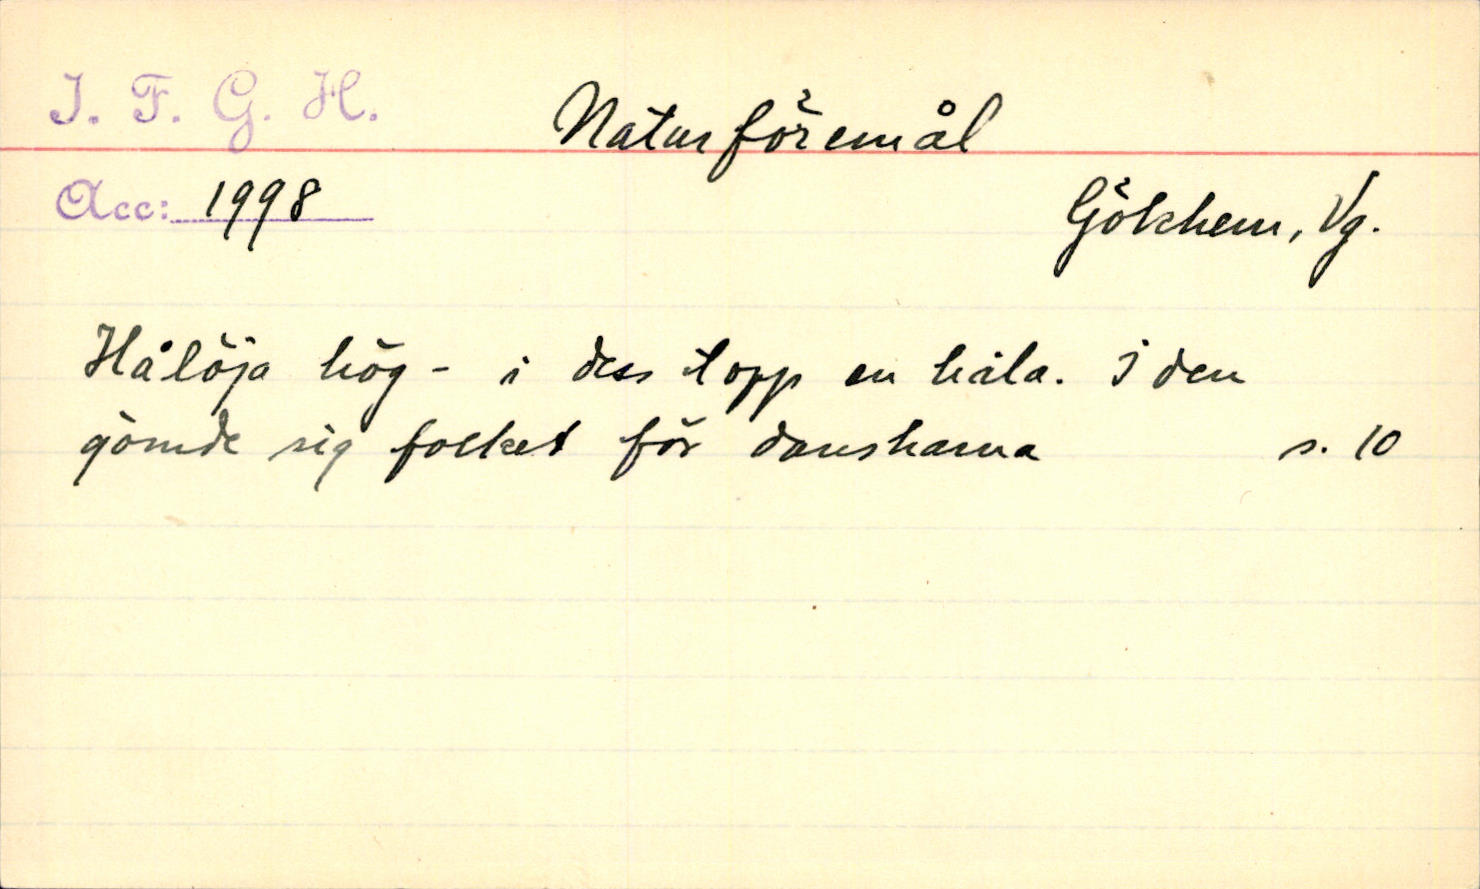 I. F. G. H.
Naturföremål
Acc: 1998
Gökhem, Vg.
Hålöja hög - i dess topp en håla. I den
gömde sig folket för danskarna s. 10